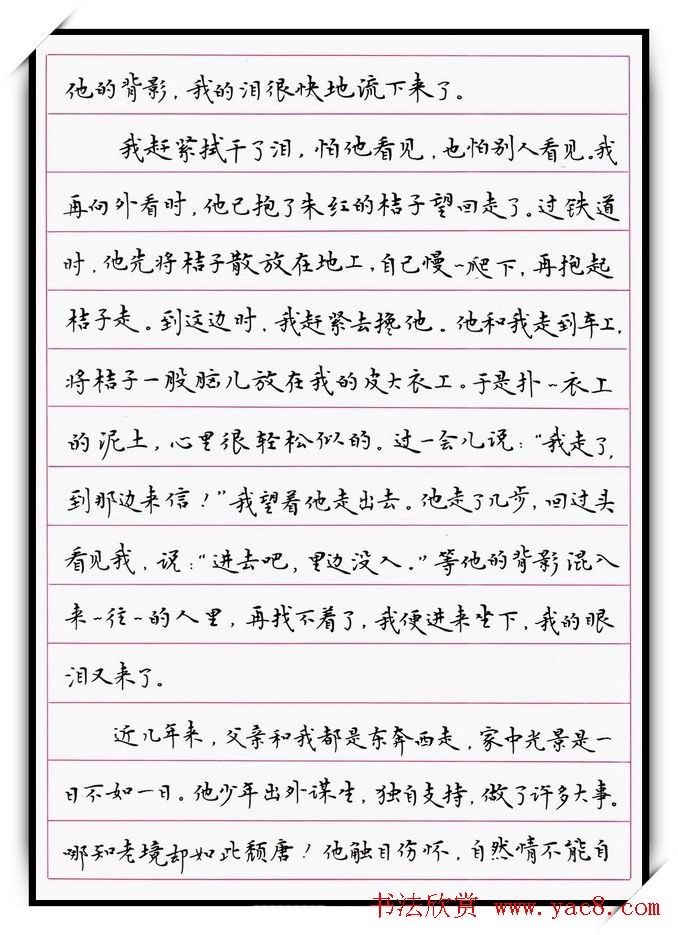 他的背影，我的泪很快地流下来了。
我赶紧拭干了泪，怕他看见，也怕别人看见。我
再向外看时，他已抱了朱红的桔子望回走了。过铁道
时，他先将桔子散放在地上，自己慢~爬下，再抱起
桔子走。到这边时，我赶紧去搀他。他和我走到车上，
将桔子一股脑儿放在我的皮大衣上。于是扑~衣上
的泥土，心里很轻松似的。过一会儿说：“我走了，
到那边来信！”我望着他走出去。他走了几步，回过头
看见我，说：“进去吧，里边没人。”等他的背影混入
来~往~的人里，再找不着了，我便进来坐下，我的眼
泪又来了。
近几年来，父亲和我都是东奔西走，家中光景是一
日不如一日。他少年出外谋生，独自支持，做了许多大事。
哪知老境却如此颓唐！他触目伤怀，自然情不能自
书法欣赏 www.yac8.com